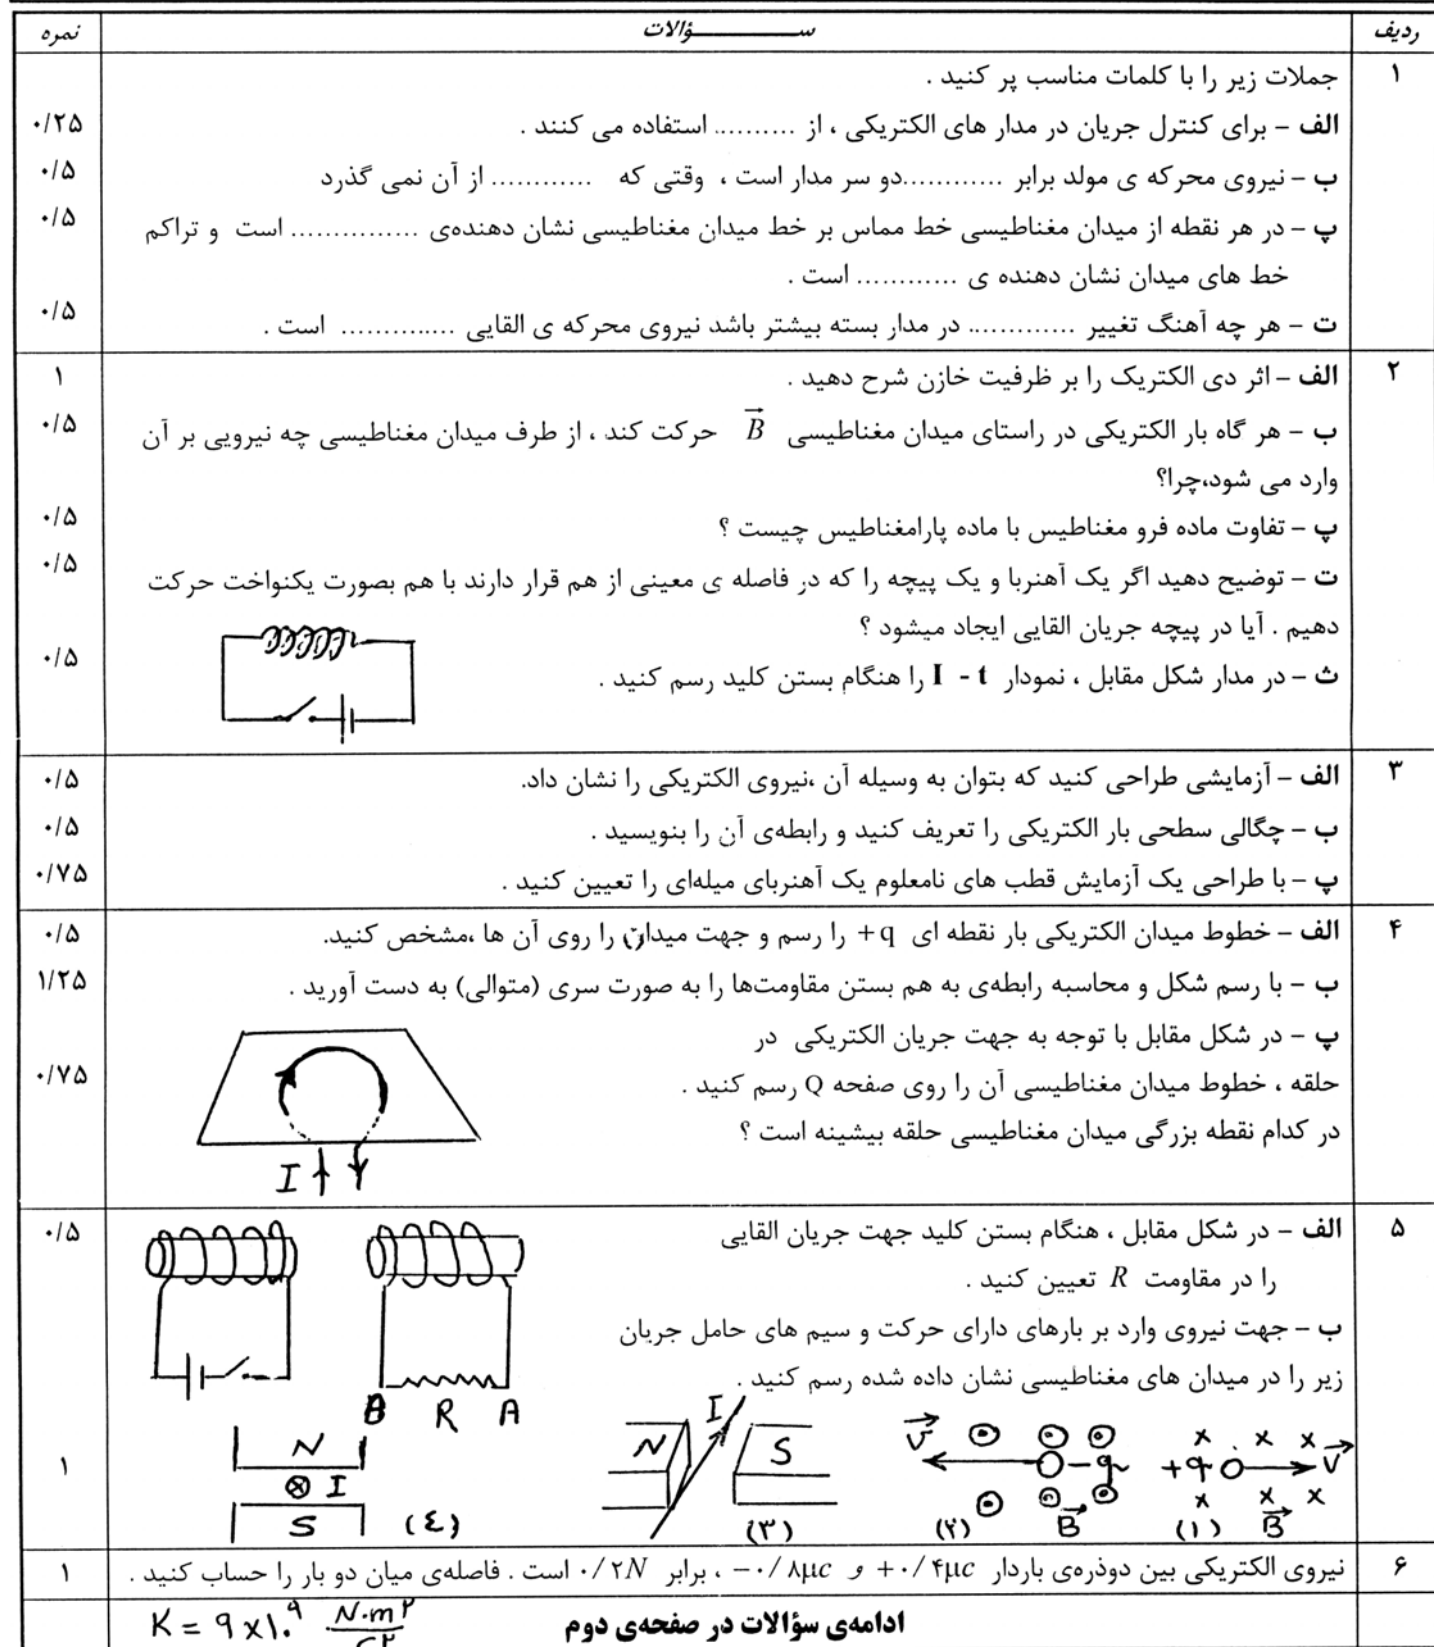 ردیف سـؤالات نمره
۱ جملات زیر را با کلمات مناسب پر کنید .
الف – برای کنترل جریان در مدار های الکتریکی ، از .......... استفاده می کنند . ۰/۲۵
ب – نیروی محرکه ی مولد برابر ............دو سر مدار است ، وقتی که ............ از آن نمی گذرد ۰/۵
پ – در هر نقطه از میدان مغناطیسی خط مماس بر خط میدان مغناطیسی نشان دهنده‌ی ............... است و تراکم ۰/۵
خط های میدان نشان دهنده ی ............ است .
ت – هر چه آهنگ تغییر ............. در مدار بسته بیشتر باشد نیروی محرکه ی القایی .............. است . ۰/۵
۲ الف – اثر دی الکتریک را بر ظرفیت خازن شرح دهید . ۱
ب – هر گاه بار الکتریکی در راستای میدان مغناطیسی B حرکت کند ، از طرف میدان مغناطیسی چه نیرویی بر آن ۰/۵
وارد می شود،چرا؟
پ – تفاوت ماده فرو مغناطیس با ماده پارامغناطیس چیست ؟ ۰/۵
ت – توضیح دهید اگر یک آهنربا و یک پیچه را که در فاصله ی معینی از هم قرار دارند با هم بصورت یکنواخت حرکت ۰/۵
دهیم . آیا در پیچه جریان القایی ایجاد میشود ؟
ث – در مدار شکل مقابل ، نمودار I - t را هنگام بستن کلید رسم کنید . ۰/۵
۳ الف – آزمایشی طراحی کنید که بتوان به وسیله آن ،نیروی الکتریکی را نشان داد. ۰/۵
ب – چگالی سطحی بار الکتریکی را تعریف کنید و رابطه‌ی آن را بنویسید . ۰/۵
پ – با طراحی یک آزمایش قطب های نامعلوم یک آهنربای میله‌ای را تعیین کنید . ۰/۷۵
۴ الف – خطوط میدان الکتریکی بار نقطه ای +q را رسم و جهت میدان را روی آن ها ،مشخص کنید. ۰/۵
ب – با رسم شکل و محاسبه رابطه‌ی به هم بستن مقاومت‌ها را به صورت سری (متوالی) به دست آورید . ۱/۲۵
پ – در شکل مقابل با توجه به جهت جریان الکتریکی در
حلقه ، خطوط میدان مغناطیسی آن را روی صفحه Q رسم کنید . ۰/۷۵
در کدام نقطه بزرگی میدان مغناطیسی حلقه بیشینه است ؟
I
۵ الف – در شکل مقابل ، هنگام بستن کلید جهت جریان القایی ۰/۵
را در مقاومت R تعیین کنید .
ب – جهت نیروی وارد بر بارهای دارای حرکت و سیم های حامل جریان
زیر را در میدان های مغناطیسی نشان داده شده رسم کنید .
B R A
۱
+q V B (۱)
V -q B (۲)
N I S (۳)
N I S (٤)
۶ نیروی الکتریکی بین دوذره‌ی باردار +۰/۴μc و −۰/۸μc ، برابر ۰/۲N است . فاصله‌ی میان دو بار را حساب کنید . ۱
ادامه‌ی سؤالات در صفحه‌ی دوم
K = ۹×۱۰^۹ N.m^۲/C^۲